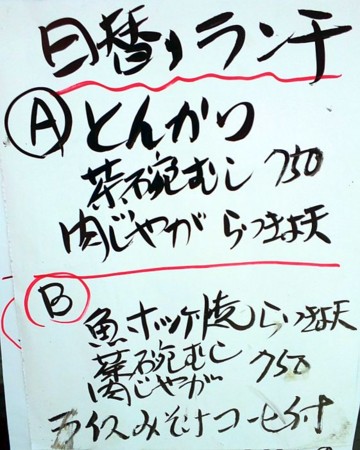 日替りランチ
A とんかつ
茶碗むし 750
肉じゃが らっきょ天
B
魚ホッケ焼 らっきょ天
茶碗むし 750
肉じゃが
ライスみそ汁コーヒー付